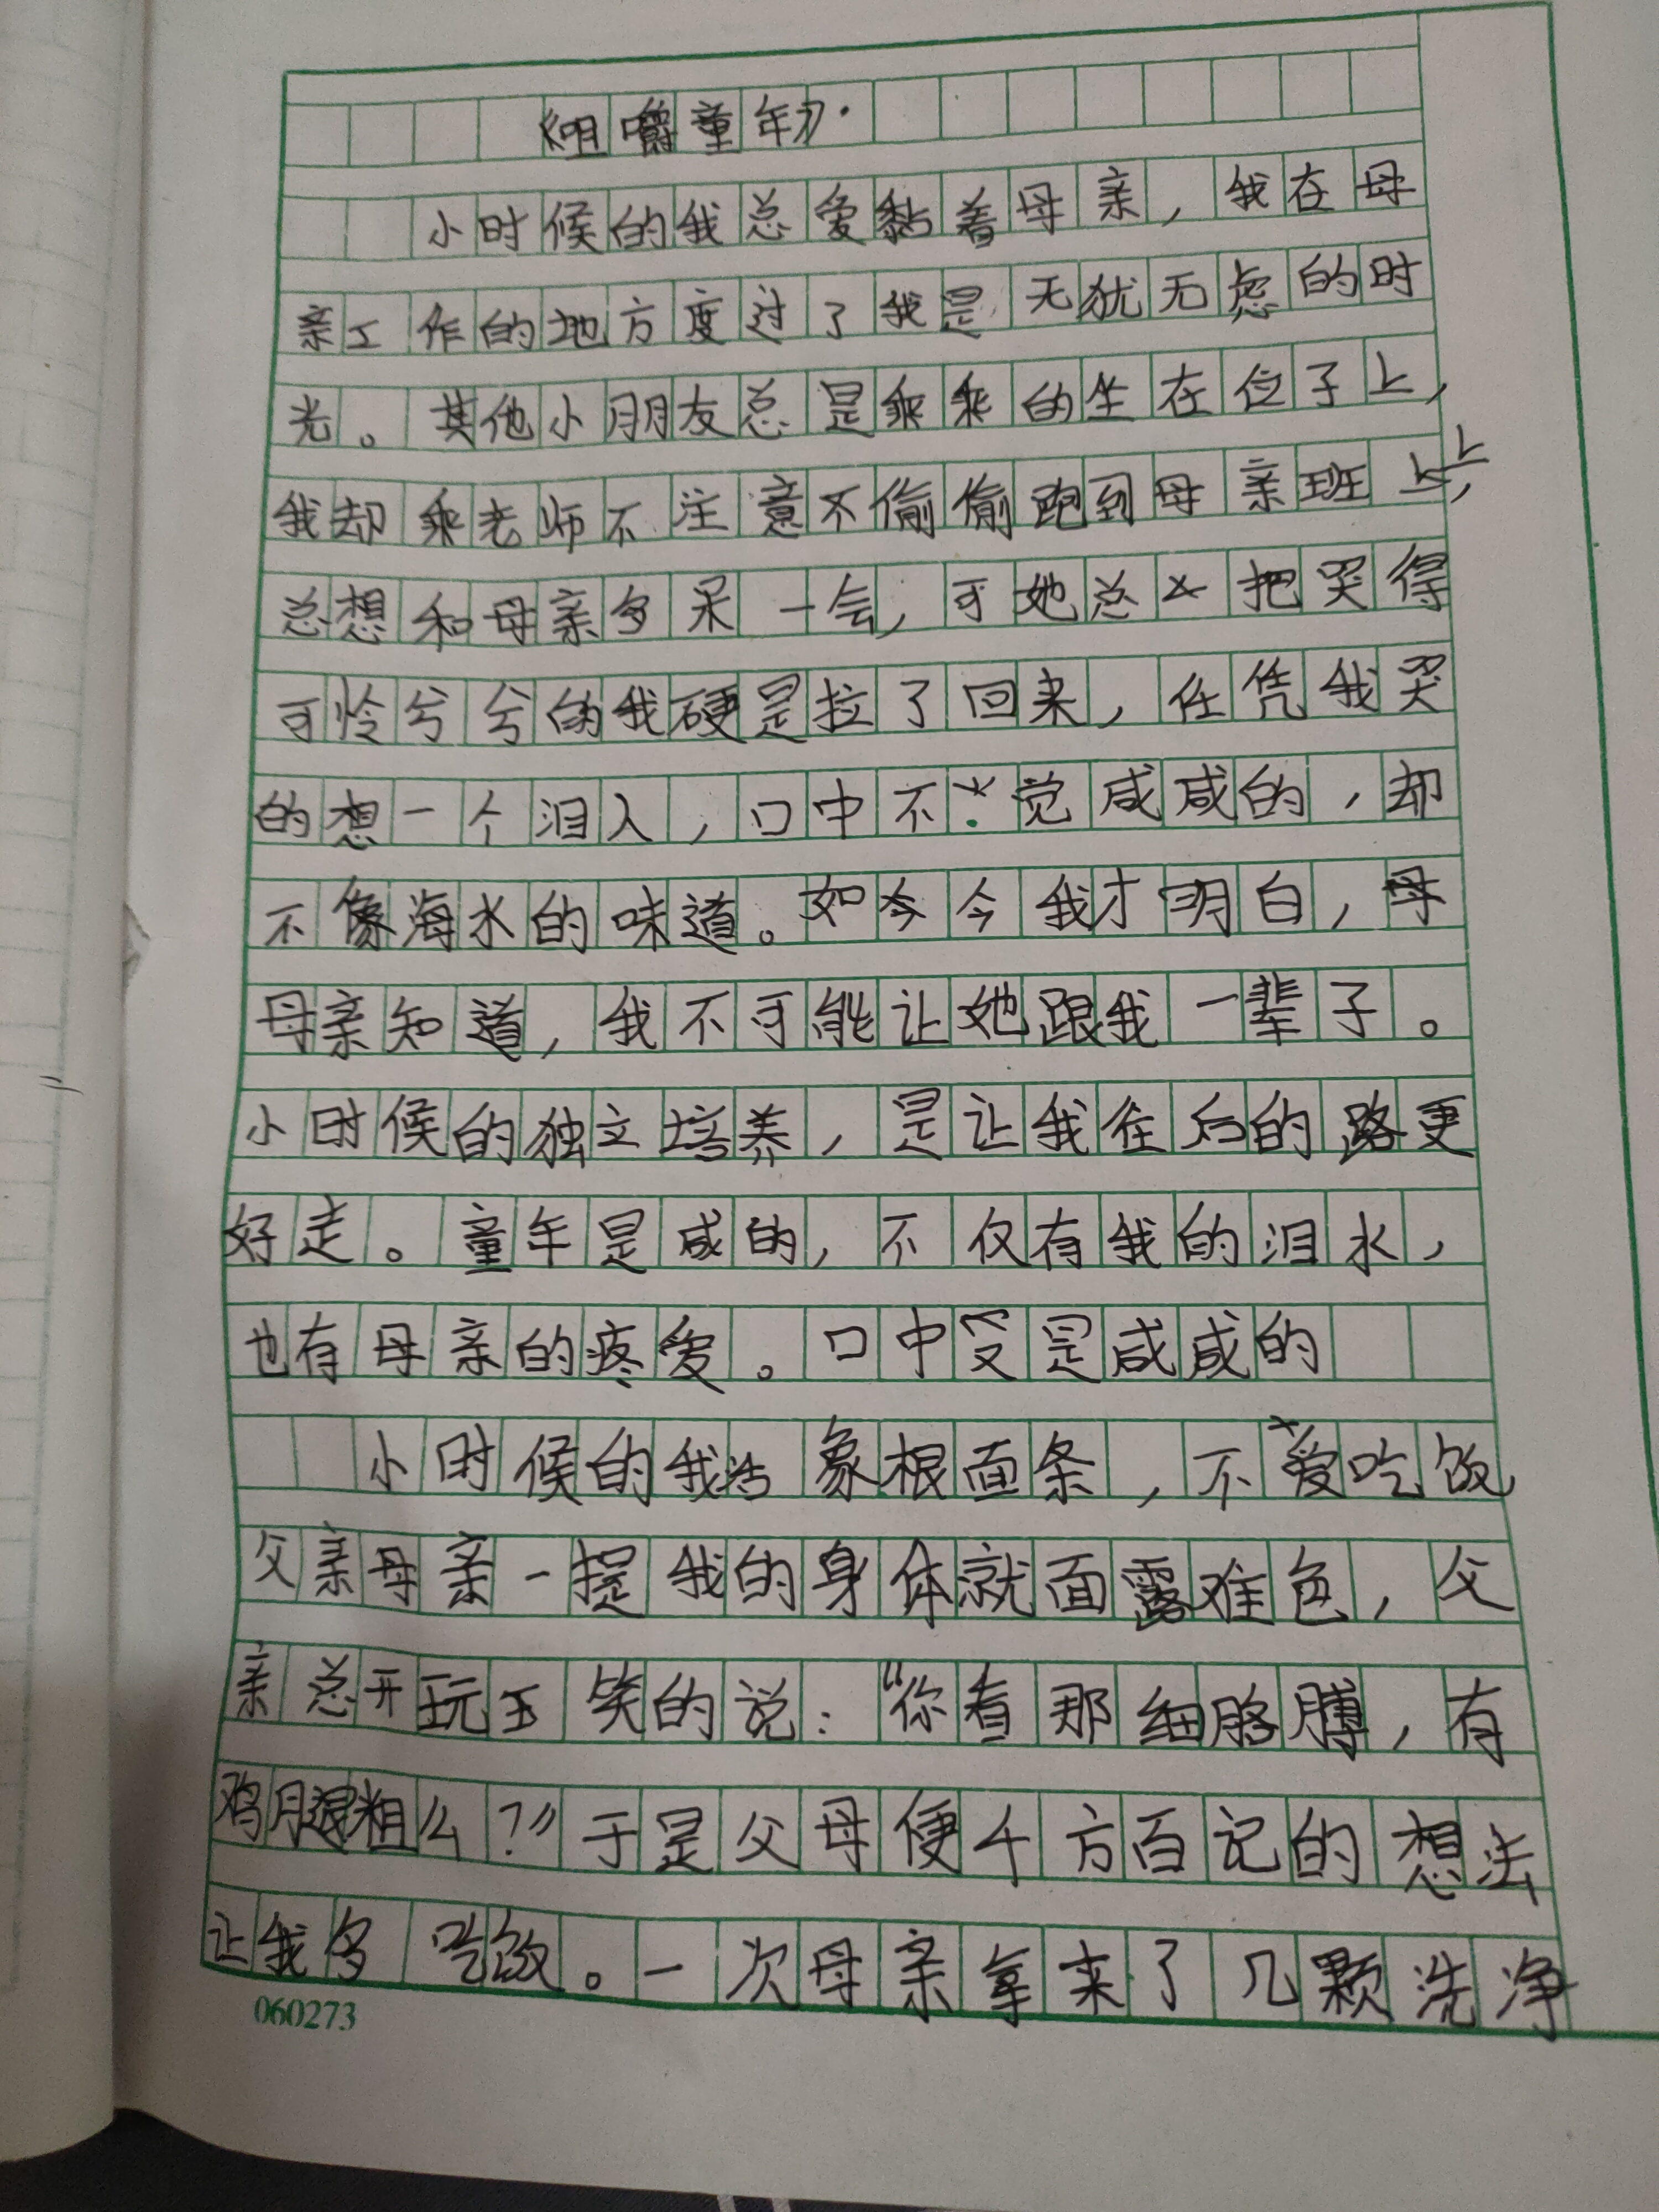 《咀嚼童年》.
小时候的我总爱黏着母亲,我在母
亲工作的地方度过了我是无犹无虑的时
光。其他小朋友总是乘乘的坐在位子上,
我却乘老师不注意不偷偷跑到母亲班上上,
总想和母亲多呆一会,可她总把哭得
可怜兮兮的我硬是拉了回来,任凭我哭
的想一个泪人,口中不觉咸咸的,却
不像海水的味道。如今今我才明白,母
母亲知道,我不可能让她跟我一辈子。
小时候的独立培养,是让我在后的路更
好走。童年是咸的,不仅有我的泪水,
也有母亲的疼爱。口中是咸咸的
小时候的我象根面条,不爱吃饭
父亲母亲一提我的身体就面露难色,父
亲总开玩笑的说:“你看那细胳膊,有
鸡腿粗么?”于是父母便千方百记的想法
让我多吃饭。一次母亲拿来了几颗洗净
060273